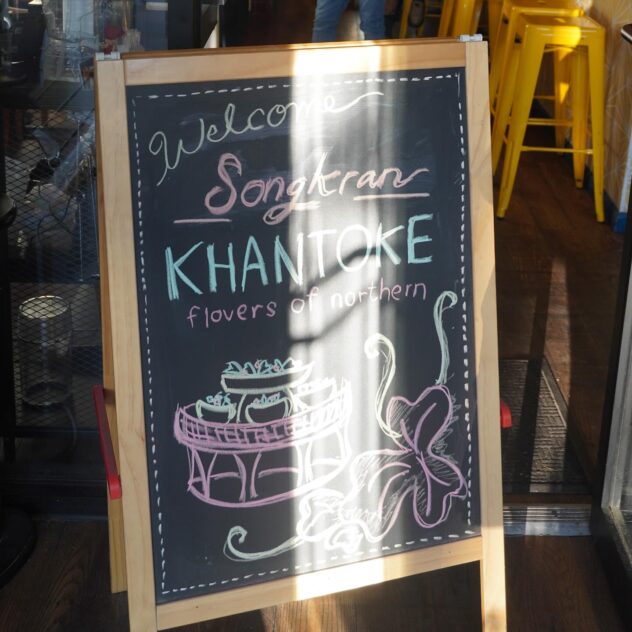 Welcome
Songkran
KHANTOKE
flovers of northern